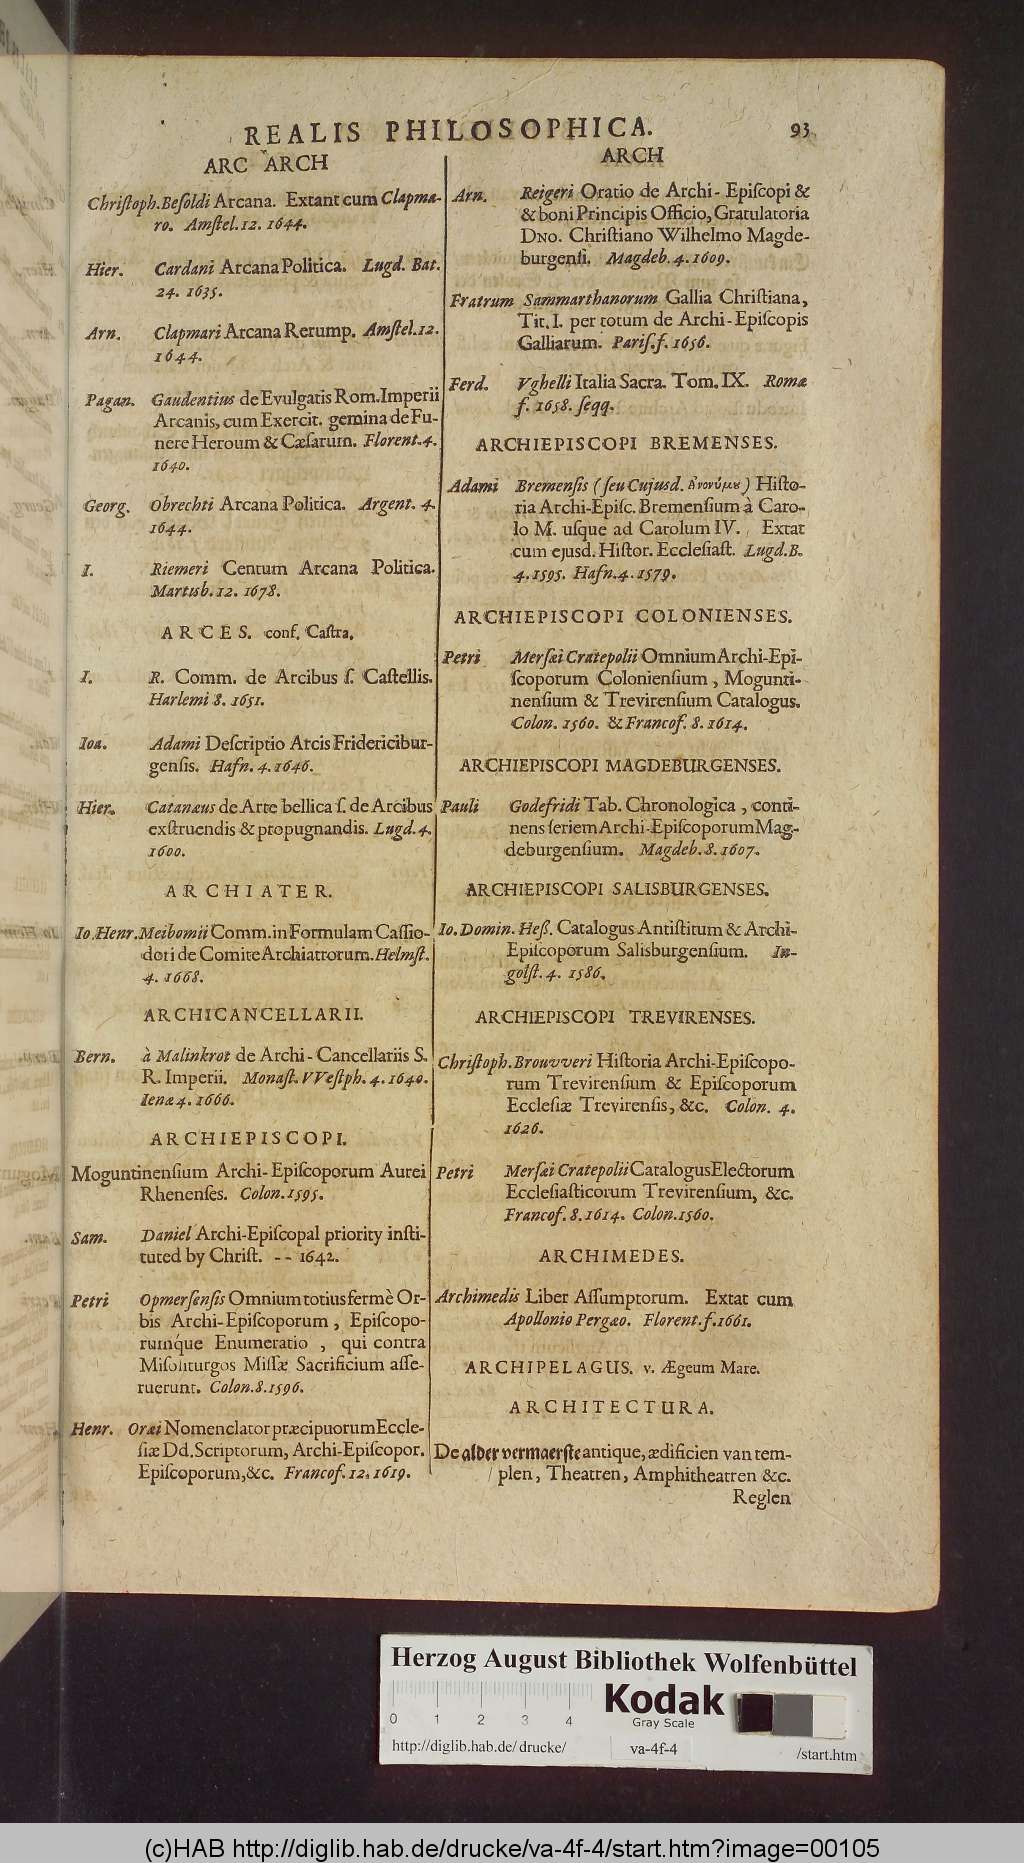 REALIS PHILOSOPHICA. 93
ARC ARCH
Christoph. Besoldi Arcana. Extant cum Clapma-
ro. Amstel. 12. 1644.
Hier. Cardani Arcana Politica. Lugd. Bat.
24. 1635.
Arn. Clapmari Arcana Rerump. Amstel. 12.
1644.
Pagan. Gaudentius de Evulgatis Rom. Imperii
Arcanis, cum Exercit. gemina de Fu-
nere Heroum & Cæsarum. Florent. 4.
1640.
Georg. Obrechti Arcana Politica. Argent. 4.
1644.
I. Riemeri Centum Arcana Politica.
Martisb. 12. 1678.
ARCES. conf. Castra.
I. R. Comm. de Arcibus s. Castellis.
Harlemi 8. 1651.
Ioa. Adami Descriptio Arcis Fridericibur-
gensis. Hafn. 4. 1646.
Hier. Catanæus de Arte bellica s. de Arcibus
exstruendis & propugnandis. Lugd. 4.
1600.
ARCHIATER.
Io. Henr. Meibomii Comm. in Formulam Cassio-
dori de Comite Archiatrorum. Helmst.
4. 1668.
ARCHICANCELLARII.
Bern. à Malinkrot de Archi-Cancellariis S.
R. Imperii. Monast. VVestph. 4. 1640.
Ienæ 4. 1666.
ARCHIEPISCOPI.
Moguntinensium Archi-Episcoporum Aurei
Rhenenses. Colon. 1595.
Sam. Daniel Archi-Episcopal priority insti-
tuted by Christ. -- 1642.
Petri Opmersensis Omnium totius fermè Or-
bis Archi-Episcoporum, Episcopo-
rumq́ue Enumeratio, qui contra
Misoliturgos Missæ Sacrificium asse-
ruerunt. Colon. 8. 1596.
Henr. Oræi Nomenclator præcipuorum Eccle-
siæ Dd. Scriptorum, Archi-Episcopor.
Episcoporum, &c. Francof. 12. 1619.
ARCH
Arn. Reigeri Oratio de Archi-Episcopi &
& boni Principis Officio, Gratulatoria
DNO. Christiano Wilhelmo Magde-
burgensi. Magdeb. 4. 1609.
Fratrum Sammarthanorum Gallia Christiana,
Tit. I. per totum de Archi-Episcopis
Galliarum. Paris. f. 1656.
Ferd. Vghelli Italia Sacra. Tom. IX. Romæ
f. 1658. seqq.
ARCHIEPISCOPI BREMENSES.
Adami Bremensis (seu Cujusd. Ἀνονύμου) Histo-
ria Archi-Episc. Bremensium à Caro-
lo M. usque ad Carolum IV. Extat
cum ejusd. Histor. Ecclesiast. Lugd. B.
4. 1595. Hafn. 4. 1579.
ARCHIEPISCOPI COLONIENSES.
Petri Mersæi Cratepolii Omnium Archi-Epi-
scoporum Coloniensium, Mogunti-
nensium & Trevirensium Catalogus.
Colon. 1560. & Francof. 8. 1614.
ARCHIEPISCOPI MAGDEBURGENSES.
Pauli Godefridi Tab. Chronologica, conti-
nens seriem Archi-Episcoporum Mag-
deburgensium. Magdeb. 8. 1607.
ARCHIEPISCOPI SALISBURGENSES.
Io. Domin. Heß. Catalogus Antistitum & Archi-
Episcoporum Salisburgensium. In-
golst. 4. 1586.
ARCHIEPISCOPI TREVIRENSES.
Christoph. Brouvveri Historia Archi-Episcopo-
rum Trevirensium & Episcoporum
Ecclesiæ Trevirensis, &c. Colon. 4.
1626.
Petri Mersæi Cratepolii Catalogus Electorum
Ecclesiasticorum Trevirensium, &c.
Francof. 8. 1614. Colon. 1560.
ARCHIMEDES.
Archimedis Liber Assumptorum. Extat cum
Apollonio Pergæo. Florent. f. 1661.
ARCHIPELAGUS. v. Ægeum Mare.
ARCHITECTURA.
De alder vermaerste antique, ædificien van tem-
plen, Theatren, Amphitheatren &c.
Reglen
Herzog August Bibliothek Wolfenbüttel
0 1 2 3 4
Kodak
Gray Scale
http://diglib.hab.de/drucke/ va-4f-4 /start.htm
(c)HAB http://diglib.hab.de/drucke/va-4f-4/start.htm?image=00105